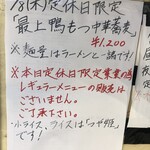 /8(木)定休日限定
「最上鴨もつ中華蕎麦」
¥1,200
※麺量はラーメンと一緒です!
※本日定休日限定営業の為
レギュラーメニューの販売は
ございません。
ご了承下さい。
小ライス、ライスは「つや姫」
です!